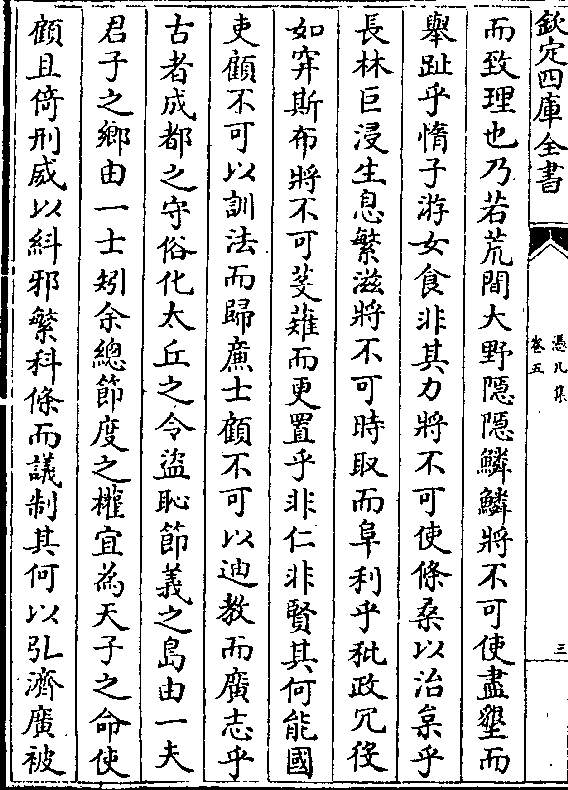 欽定四庫全書
憑几集
卷五
三
而致理也乃若荒間大野隱隱鱗鱗將不可使盡墾而
舉趾乎惰子游女食非其力將不可使條桑以治枲乎
長林巨浸生息繁滋將不可時取而阜利乎秕政冗役
如穽斯布將不可芟薙而更置乎非仁非賢其何能國
吏顧不可以訓法而歸廉士顧不可以迪教而廣志乎
古者成都之守俗化太丘之令盜恥節義之島由一夫
君子之鄉由一士矧余總節度之權宜為天子之命使
顧且倚刑威以糾邪繁科條而議制其何以弘濟廣被